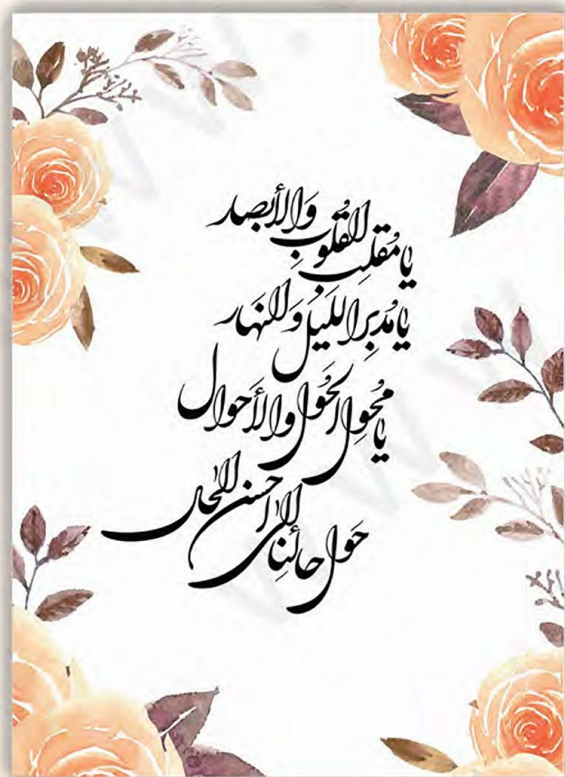 يا مُقلِبَ القُلوُبِ وَالأبصار
يا مُدبِرَ الليلِ وَالنهار
يا مُحوِل الحَولِ والأَحوال
حَوِل حالَنا إِلىٰ اَحسن الحال